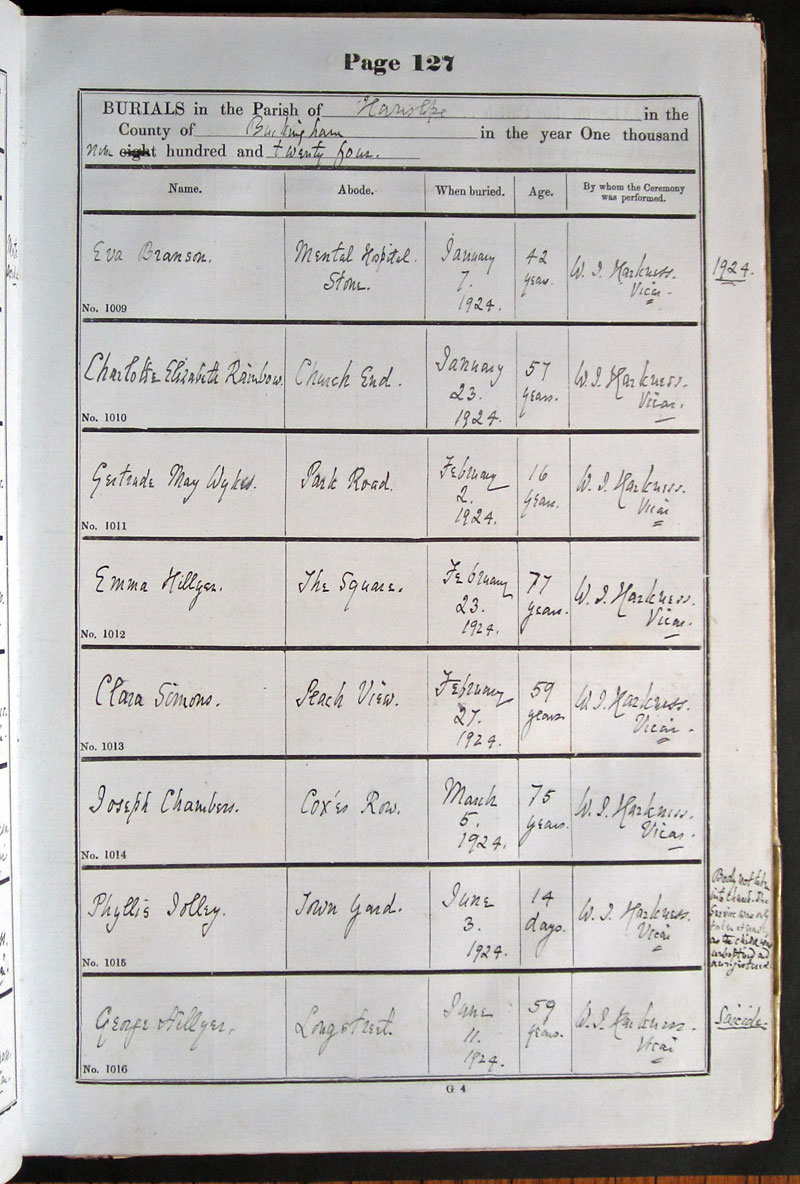 Page 127
BURIALS in the Parish of Hanslope in the
County of Buckingham in the year One thousand
Nine eight hundred and twenty four.
Name. Abode. When buried. Age. By whom the Ceremony was performed.
Eva Branson. Mental Hospital. January 42 W. J. Harkness. 1924.
Stone. 7. years. Vicar.
1924.
No. 1009
Charlotte Elizabeth Rainbow. Church End. January 57 W. J. Harkness.
23. years. Vicar.
1924.
No. 1010
Gertrude May Wykes. Park Road. February 16 W. J. Harkness.
2. years. Vicar
1924.
No. 1011
Emma Hillyer. The Square. February 77 W. J. Harkness.
23. years. Vicar.
1924.
No. 1012
Clara Simons. Peach View. February 59 W. J. Harkness.
27. years Vicar.
1924.
No. 1013
Joseph Chambers. Cox'es Row. March 75 W. J. Harkness.
5. years. Vicar.
1924.
No. 1014
Phyllis Jolley. Town Yard. June 14 W. J. Harkness.
3. days. Vicar
1924.
No. 1015
Body not taken
into church. The
Service was only
as the child was
George Hillyer. Long street. June 59 W. J. Harkness. Suicide.
11. years. Vicar
1924.
No. 1016
G 4